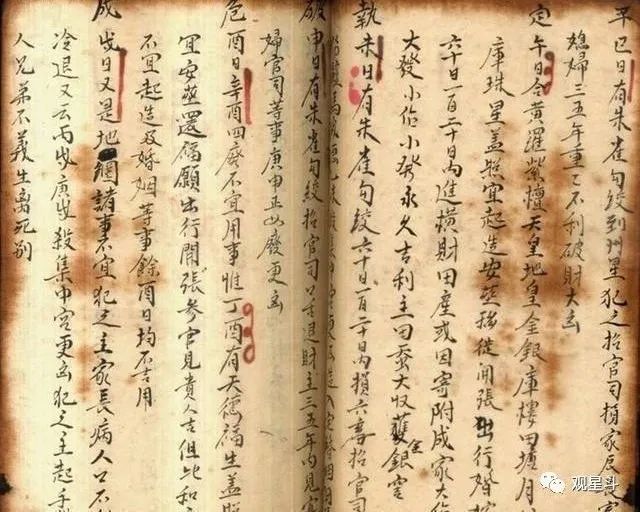 平巳日有朱雀勾絞到州星犯之招官司損家長
媳婦三五年重々不利破財大凶
定午日合黃羅紫檀天皇地皇金銀庫樓田塘月
庫珠星盖照宜起造安葬移徙開張出行婚
六十日一百二十日內進橫財田產或因寄附成家大作
大發小作小發永久吉利主田蚕大收獲金銀
執未日有朱雀勾絞六十日一百二十日內損六畜招官司
破申日有朱雀勾絞招官司口舌退財主三五年內見
婦官司等事庚申正四廢更凶
危酉日辛酉四廢不宜用事惟丁酉有天德福生盖照
宜安葬還福願出行開張參官見貴人吉但比和
不宜起造及婚姻等事餘酉日均不吉用
成戌日又是地網諸事不宜犯之主家長病人口不
冷退又云丙戌庚戌殺集中宮更凶犯之主起手
人兄弟不義生離死別
观星斗